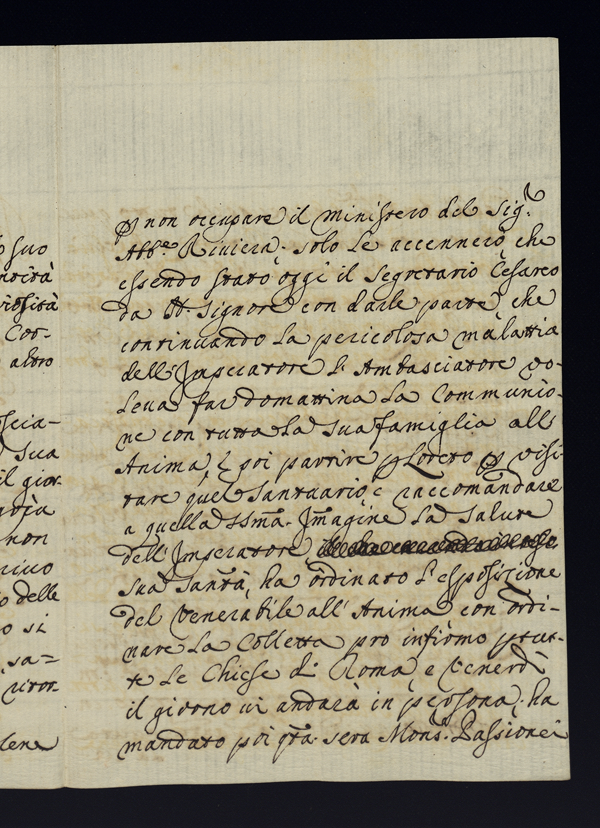 suo
Cor-
altro
scia-
sua
il gior-
non
delle
o si
sa=
p non occupare il ministero del Sig.r
Abb.e Riviera. solo le accennerò che
essendo stato oggi il Segretario Cesareo
da N. Signore con darle parte, che
continuando la pericolosa malattia
dell'Imperatore l'Ambasciatore vo-
leva far domattina la Communio-
ne con tutta la sua famiglia all'
Anima, e poi partire p Loreto p visi-
tare quel Santuario, e raccomandare
a quella SSma. Imagine la salute
dell'Imperatore
sua Santà, ha ordinato l'esposizione
del Venerabile all'Anima con ordi-
nare la Colletta pro infirmo p tut-
te le Chiese di Roma, e Venerdì
il giorno vi andarà in persona, ha
mandato poi qta. sera Mons. Passionei